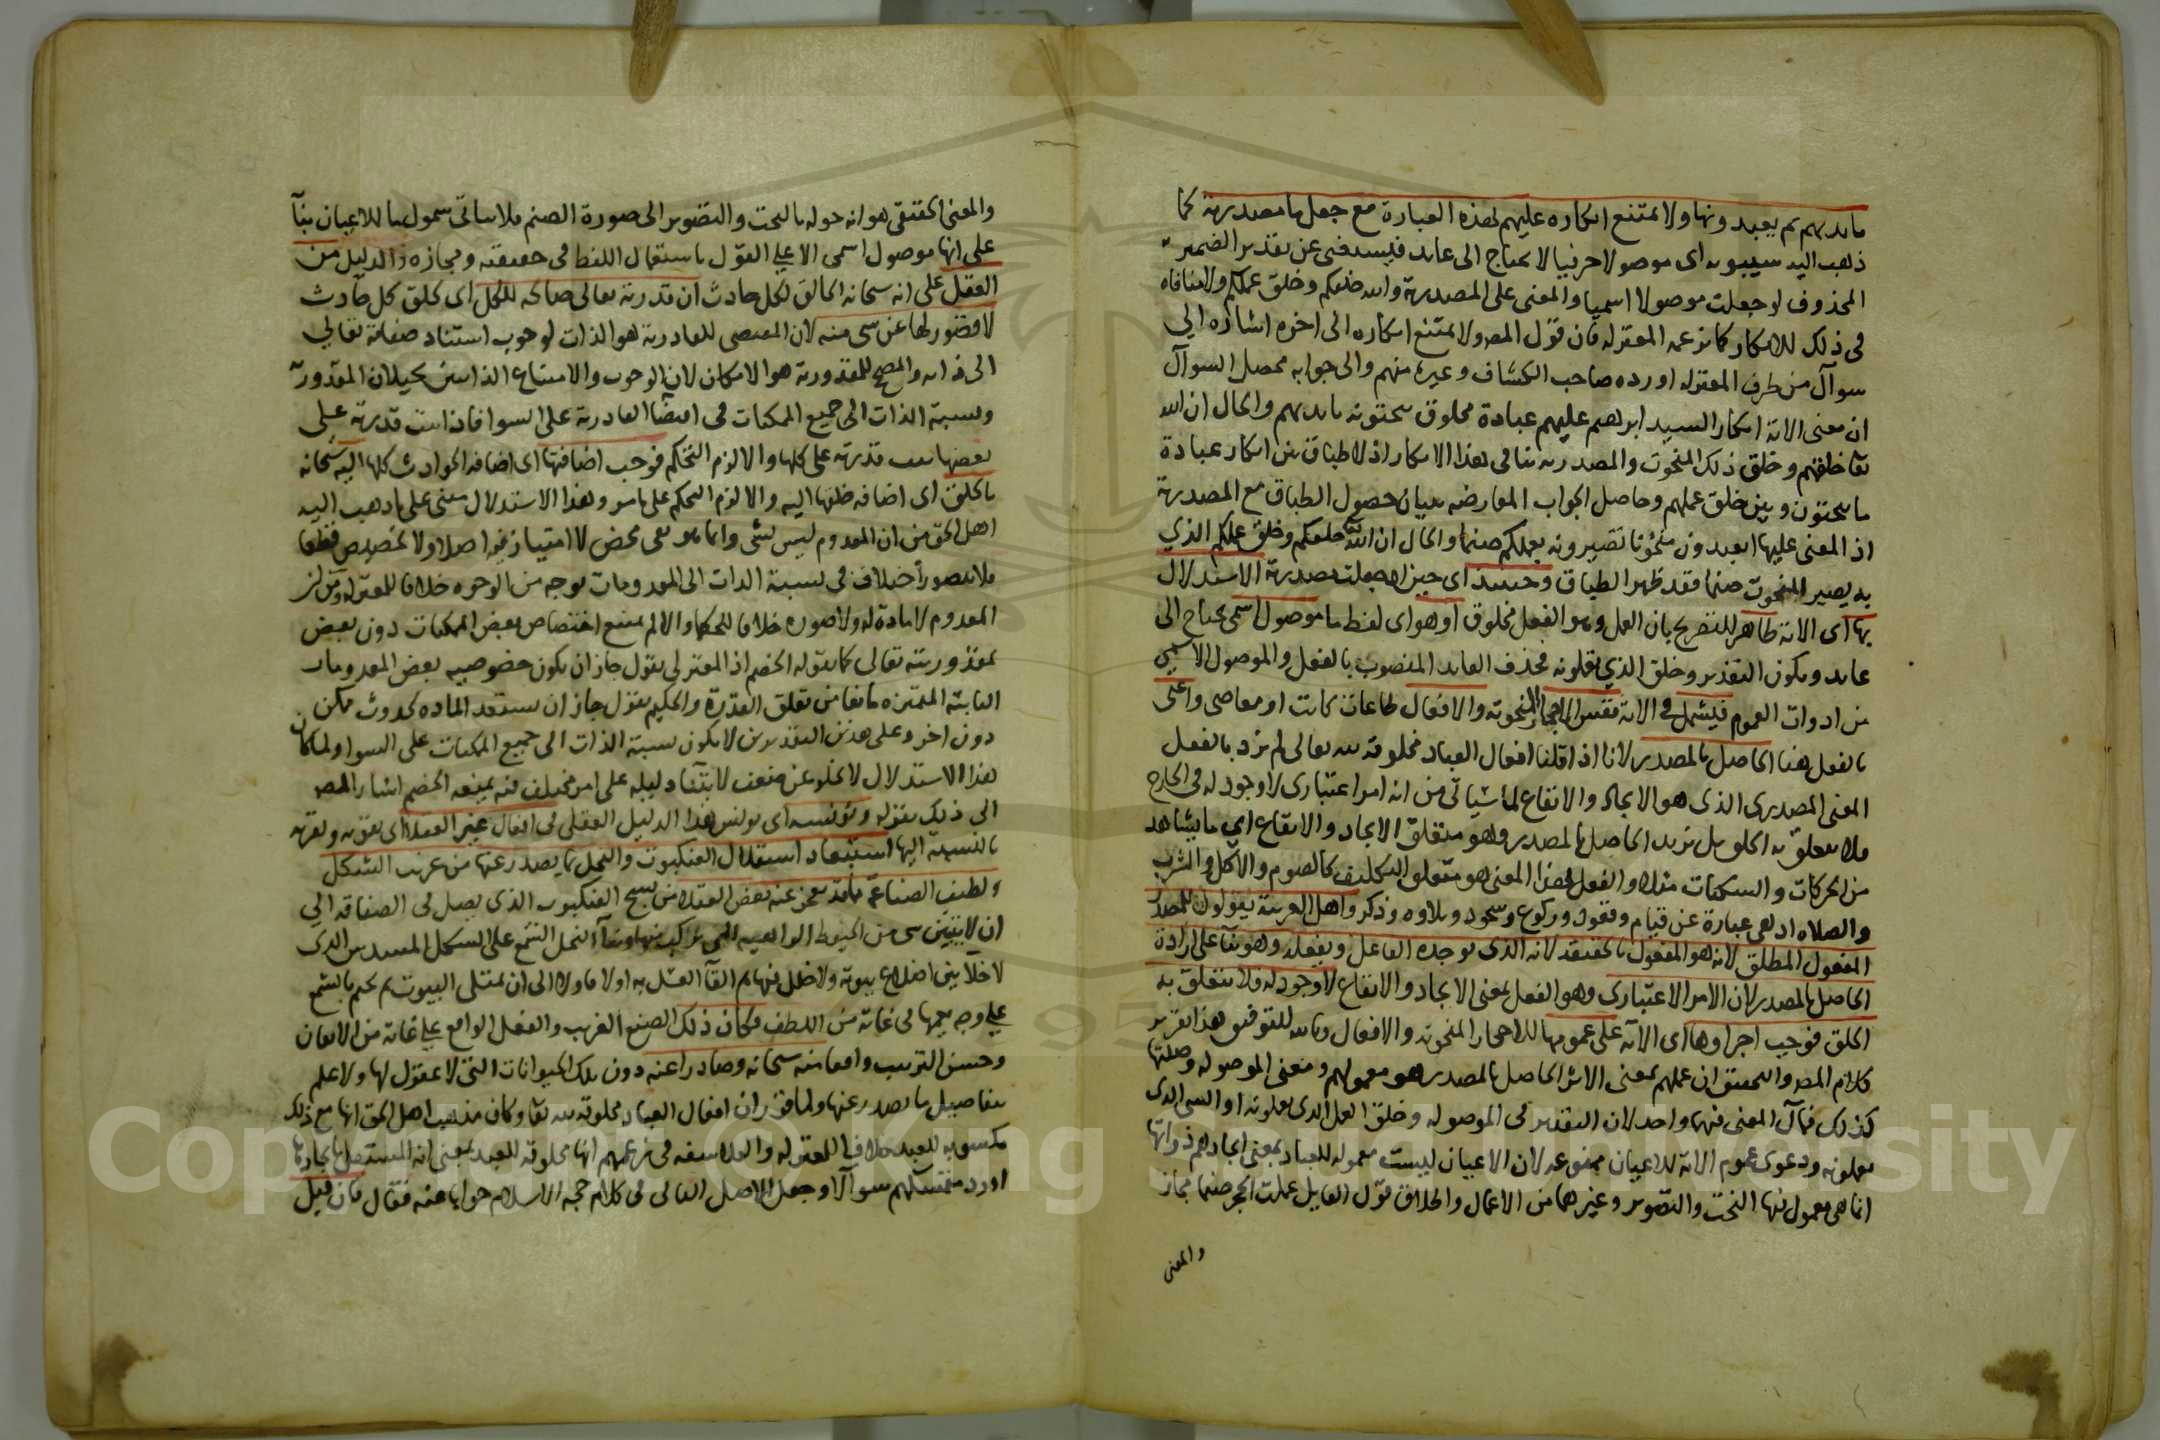 بايديهم ثم يعبدونها ولا يمتنع انكاره عليهم بهذه العبارة مع جعل ما مصدرية كما
ذهب اليه سيبويه اى موصولا حرفيا لا يحتاج الى عايد فيستغنى عن تقدير الضمير
المحذوف لو جعلت موصولا اسميا والمعنى على المصدرية والله خلقكم وخلق عملكم ولا منافاه
فى ذلك للانكار كما تزعمه المعتزله فان قول المص ولا يمتنع انكاره الى اخره اشاره الي
سوال من طرف المعتزله اورده صاحب الكشاف وغيره منهم والى جوابه محصل السوال
ان معنى الاية انكار السيد ابرهيم عليهم عبادة مخلوق ينحتونه بايديهم والحال ان الله
تعا خلقهم وخلق ذلك المنحوت والمصدرية تنافى هذا الانكار اذ لا طباق بين انكار عبادة
ما ينحتون وبين خلق عملهم وحاصل الجواب المعارضه ببيان حصول الطباق مع المصدرية
اذ المعنى عليها اتعبدون منحوتا تصيرونه بعملكم صنما والحال ان الله خلقكم وخلق عملكم الذي
به يصير المنحوت صنما فقد ظهر الطباق وحينئذ اى حين اذ جعلت مصدرية الاستدلال
بها اى الاية ظاهر للتصريح بان العمل وهو الفعل مخلوق او هو اى لفظ ما موصول اسمى يحتاج الى
عايد ويكون التقدير وخلق الذي تعملونه فحذف العايد المنصوب بالفعل والموصول الاسمي
من ادوات العموم فيشمل فى الاية نفس الاحجار المنحوته والافعال طاعات كانت او معاصى واعنى
بالفعل هنا الحاصل بالمصدر لانا اذا قلنا افعال العباد مخلوقه لله تعالى لم نرد بالفعل
المعنى المصدرى الذى هو الايجاد والايقاع لما سياتى من انه امر اعتبارى لا وجود له فى الخارج
فلا يتعلق به الخلق بل نريد الحاصل بالمصدر وهو متعلق الايجاد والايقاع اي ما يشاهد
من الحركات والسكنات مثلا والفعل بهذا المعنى هو متعلق التكليف كالصوم والاكل والشرب
والصلاه اذ هى عبارة عن قيام وقعود وركوع وسجود وتلاوه وذكر واهل العربية يقولون للمصدر
المفعول المطلق لانه هو المفعول بالحقيقه لانه الذى يوجده الفاعل ويفعله وهو بنآ على ارادة
الحاصل بالمصدر لان الامر الاعتبارى وهو الفعل بمعنى الايجاد والايقاع لا وجود له فلا يتعلق به
الخلق فوجب اجراوها اى الاية على عمومها للاحجار المنحوته والافعال وبالله التوفيق هذا تقرير
كلام المص والتحقيق ان عملهم بمعنى الاثر الحاصل بالمصدر هو معمولهم ومعنى الموصوله وصلتها
كذلك فمآل المعنى فيهما واحد لان التقدير فى الموصوله وخلق العمل الذى تعملونه او الشى الذى
تعملونه ودعوى عموم الاية للاعيان ممنوعه لان الاعيان ليست معموله للعباد بمعنى ايجادهم ذواتها
انما هى معمول فيها النحت والتصوير وغيرهما من الاعمال والحلاق قول القايل عملت الحجر صنما مجاز
والمعنى
والمعنى الحقيقى هو انه حوله بالنحت والتصوير الى صورة الصنم فلا يتاتى شمول ما للاعيان بنآ
على انها موصول اسمى الا على القول باستعمال اللفظ فى حقيقته ومجازه والدليل من
العقل على انه سبحانه الخالق لكل حادث ان قدرته تعالى صالحه للكل اى لخلق كل حادث
لا قصور لها عن شى منه لان المقتضى للقادرية هو الذات لوجوب استناد صفاته تعالي
الى ذاته والمصحح للمقدورية هو الامكان لان الوجوب والامتناع الذاتيين يحيلان المقدورية
ونسبة الذات الى جميع الممكنات فى اقتضا القادرية على السوا فاذا ثبت قدرته على
بعضها ثبت قدرته على كلها والا لزم التحكم فوجب اضافتها اى اضافه الحوادث كلها اليه سبحانه
بالخلق اى اضافه خلقها اليه والا لزم التحكم على ما مر وهذا الاستدلال مبنى على ما ذهب اليه
اهل الحق من ان المعدوم ليس بشى وانما هو نفى محض لا امتياز فيه اصلا ولا تخصيص قطعا
فلا يتصور اختلاف فى نسبة الذات الى المعدومات بوجه من الوجوه خلافا للمعتزله ومن ان
المعدوم لا مادة له ولا صوره خلافا للحكما والا لم يمتنع اختصاص بعض الممكنات دون بعض
بمقدوريته تعالى كما يقوله الخصم اذ المعتزلي يقول جاز ان يكون خصوصيه بعض المعدومات
الثابتة المتميزه مانعا من تعلق القدرة والحكيم يقول جاز ان تستعد الماده لحدوث ممكن
دون اخر وعلى هذين التقديرين لا يكون نسبة الذات الى جميع الممكنات على السوا ولما كان
هذا الاستدلال لا يخلو عن ضعف لابتنا دليله على امر مختلف فيه يمنعه الخصم اشار المص
الى ذلك بقوله ويونسه اى يونس هذا الدليل العقلى فى افعال غير العقلا اى يقويه ويقربه
بالنسبة اليها استبعاد استقلال العنكبوت والنحل بما يصدر عنها من غريب الشكل
ولطيف الصناعة مما قد يعجز عنه بعض العقلا من نسج العنكبوت الذى يصل فى الصفاقه الي
ان لا يتبين شى من الخيوط الواهيه التى تركب منها وبنآ النحل الشمع على الشكل المسدس الذى
لا خلا بين اضلاع بيوته ولا خلل فيها ثم القآ العسل به اولا فاولا الى ان تمتلى البيوت ثم يختم بالشمع
على وجه يعمها فى غاية من اللطف فكان ذلك الصنع الغريب والفعل الواقع على غاية من الاتقان
وحسن الترتيب واقعا منه سبحانه وصادرا عنه دون تلك الحيوانات التى لا عقول لها ولا علم
بتفاصيل ما يصدر عنها ولما قرر ان افعال العباد مخلوقه لله تعا وكان مذهب اهل الحق انها مع ذلك
مكسوبه للعبد خلافا للمعتزله والفلاسفه فى زعمهم انها مخلوقه للعبد بمعنى انه المستقل بايجادها
اورد متمسكهم سوآلا وجعل الاصل الثالث فى كلام حجه الاسلام جوابا عنه فقال فان قيل